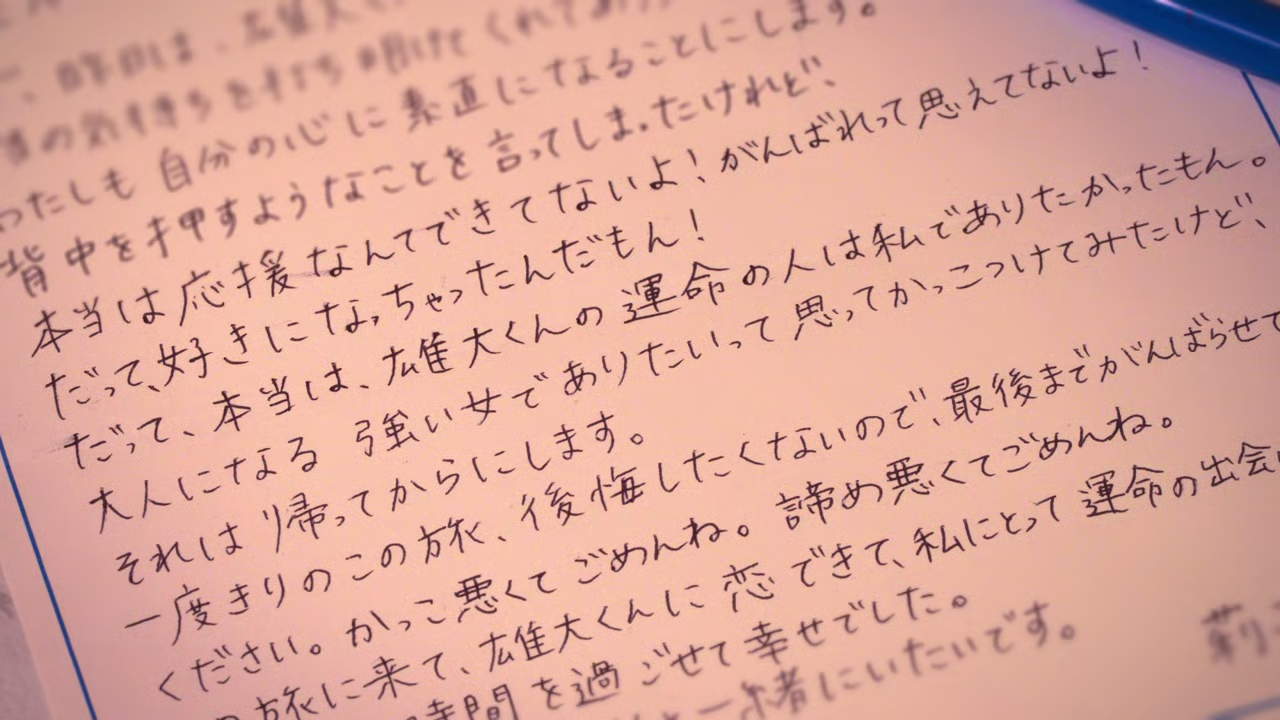 、昨日は、雄大
の気持ちを打ち明けてくれてあり
わたしも自分の心に素直になることにします。
背中を押すようなことを言ってしまったけれど、
本当は応援なんてできてないよ！がんばれって思えてないよ！
だって、好きになっちゃったんだもん！
だって、本当は、雄大くんの運命の人は私でありたかったもん。
大人になる 強い女でありたいって思ってかっこつけてみたけど、
それは帰ってからにします。
一度きりのこの旅、後悔したくないので、最後までがんばらせて
ください。かっこ悪くてごめんね。諦め悪くてごめんね。
の旅に来て、雄大くんに恋できて、私にとって運命の出会い
時間を過ごせて幸せでした。
と一緒にいたいです。
莉